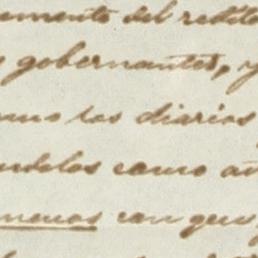 emente del redito
s gobernantes, y
omo los diarios
ndolos como añ
menos con que